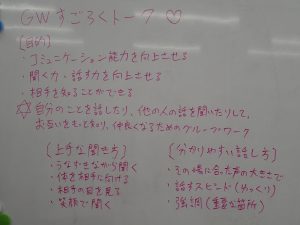 GWすごろくトーク♡
[目的]
・コミュニケーション能力を向上させる
・聞く力・話す力を向上させる
・相手を知ることができる
☆自分のことを話したり、他の人の話を聞いたりして、
お互いをもっと知り、仲良くなるためのグループワーク
[上手な聞き方]
・うなずきながら聞く
・体を相手に向ける
・相手の目を見る
・笑顔で聞く
[分かりやすい話し方]
・その場に合った声の大きさで
・話すスピード(ゆっくり)
・強調(重要な箇所)